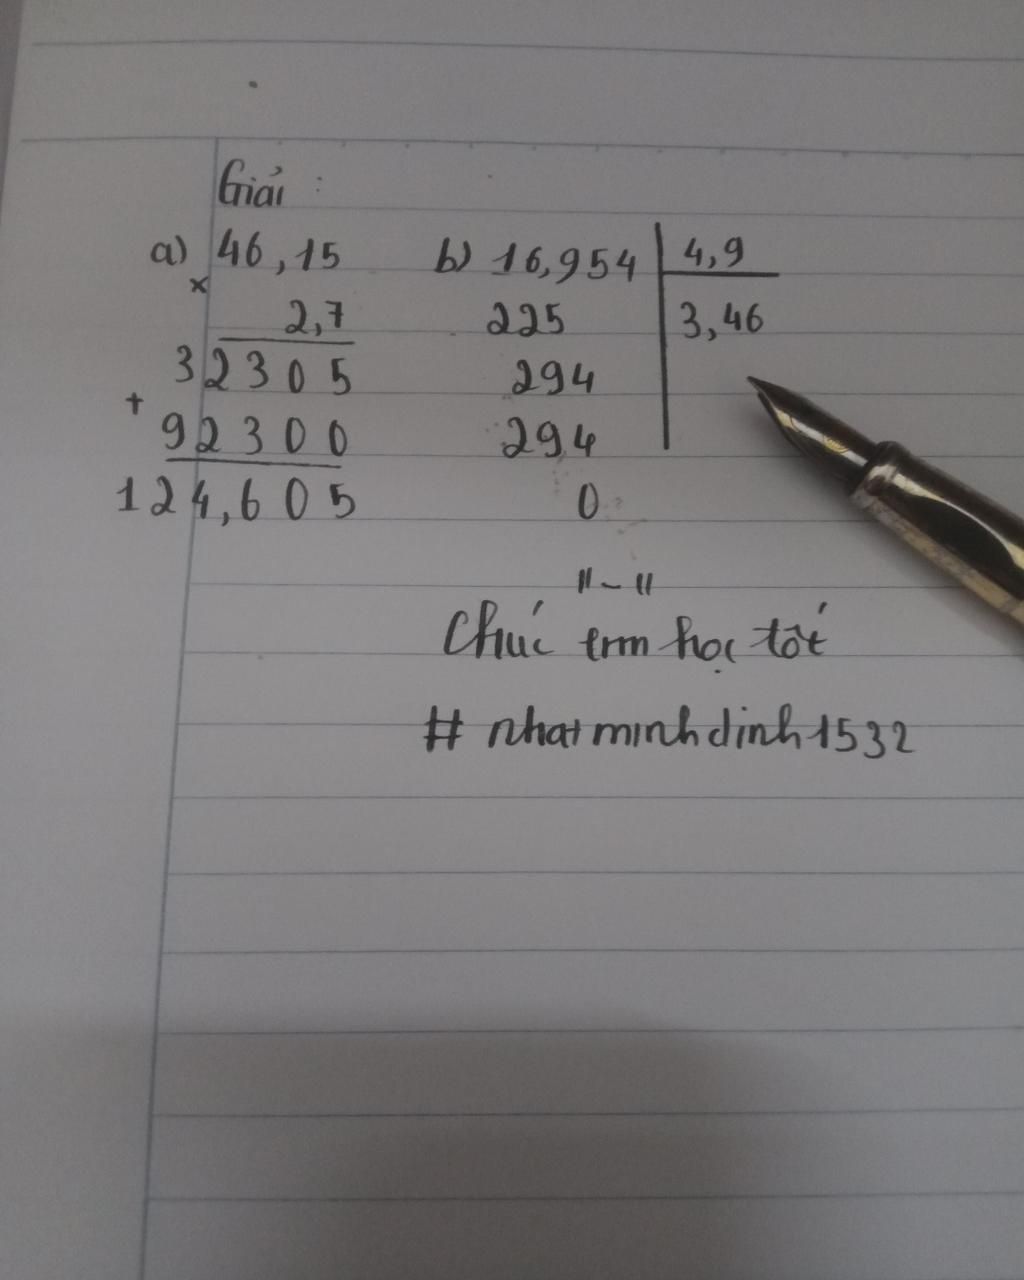 Giải :
a) 46,15
x
2,7
32305
+
92300
124,605
b) 16,954 4,9
225 3,46
294
294
0
"-"
Chúc em học tốt
# nhatminhdinh1532